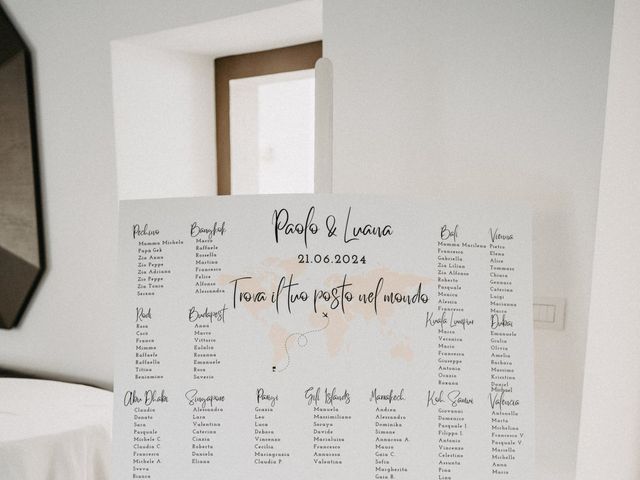 Paolo & Luana
21.06.2024
Trova il tuo posto nel mondo
Pechino
Mamma Michela
Papa Gek
Zia Anna
Zio Peppe
Zia Adriana
Zio Peppe
Zia Tonia
Serena
Bangkok
Marco
Raffaele
Rossella
Martina
Francesco
Felice
Alfonso
Alessandra
Bali
Mamma Marilena
Francesco
Gabriella
Zia Lilian
Zio Alfonso
Roberto
Pasquale
Monica
Alessio
Francesco
Vienna
Pietro
Elena
Alice
Tommaso
Chiara
Gennaro
Caterina
Luigi
Marianna
Marco
Rodi
Rosa
Carò
Franco
Mimma
Raffaele
Raffaella
Titina
Beniamino
Budapest
Anna
Marco
Vittorio
Eulalia
Rosanna
Emanuele
Rosa
Saverio
Kuala Lumpur
Marco
Veronica
Mario
Francesca
Giuseppe
Antonia
Oxana
Dubai
Emanuele
Giulia
Olivia
Amelia
Barbara
Massimo
Kristina
Daniel
Michael
Abu Dhabi
Claudia
Donato
Sara
Pasquale
Michele C.
Claudia C.
Francesca
Michele A.
Sveva
Bianca
Singapore
Alessandro
Luca
Valentina
Caterina
Cinzia
Roberta
Daniela
Eliana
Parigi
Grazia
Leo
Luca
Debora
Vincenzo
Cecilia
Mariagrazia
Claudia P.
Gili Islands
Manuela
Massimiliano
Soraya
Davide
Marialuisa
Francesco
Annarosa
Valentina
Marrakech
Andrea
Alessandro
Dominika
Simone
Annarosa A.
Mauro
Gaia C.
Sofia
Margherita
Gaia B.
Koh Samui
Giovanni
Domenico
Pasquale I.
Filippo I.
Antonio
Vincenzo
Celestino
Assunta
Pina
Lina
Valencia
Antonella
Marta
Michelina
Francesco V.
Pasquale V.
Mariella
Michele
Anna
Maria